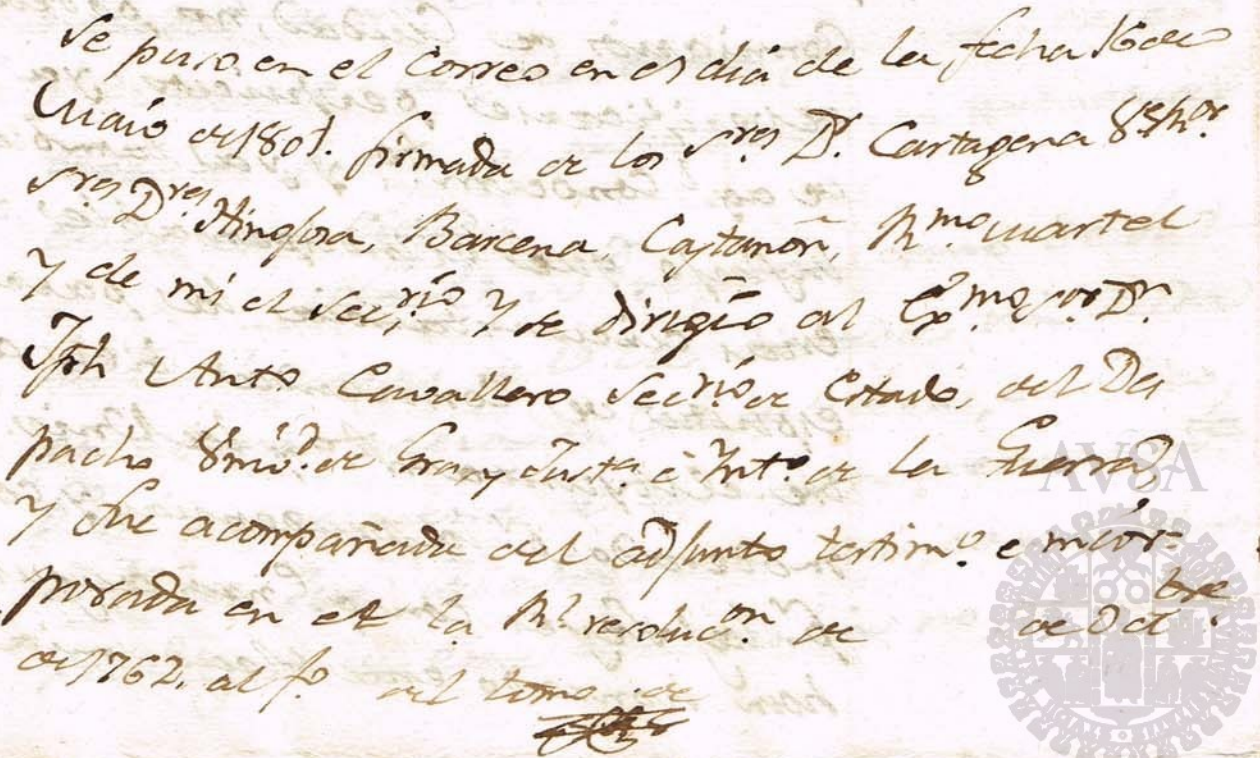 Se puso en el Correo en el dia de la fecha 16 de
Maio de 1801. firmada de los Sres Dr. Cartagena
Sres Dres Hinojosa, Barcena, Castañon, Rmo Martel
y de mi el Secrio y se dirigio al Exmo Sor Dn
Jph Anto Cavallero Secrio de Estado, del Des
pacho de Gra y Justa e Into de la Guerra
y fue acompañada del adjunto testimo e incor-
porada en el la Rl resolucon de de Octbre
de 1762. al fo del tomo de
AVSA